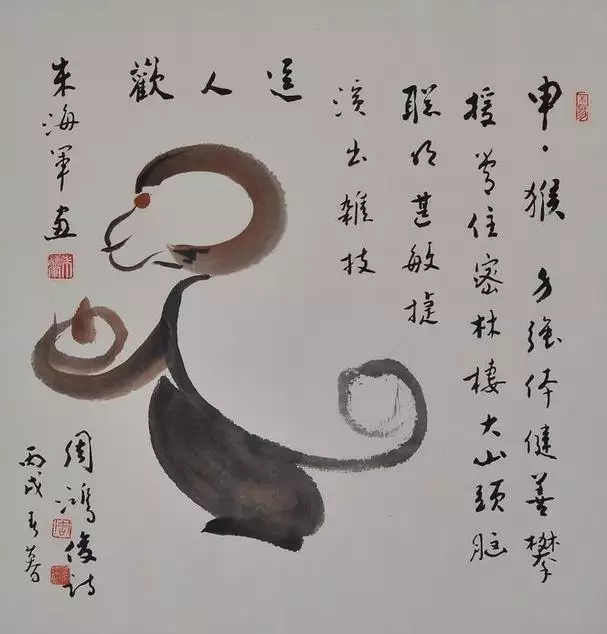 申·猴 力强体健善攀
援常住密林棲大山頭脑
聪明甚敏捷
演出雜技
逗
人
歡
朱海军画
周鴻俊诗
丙戌春暮